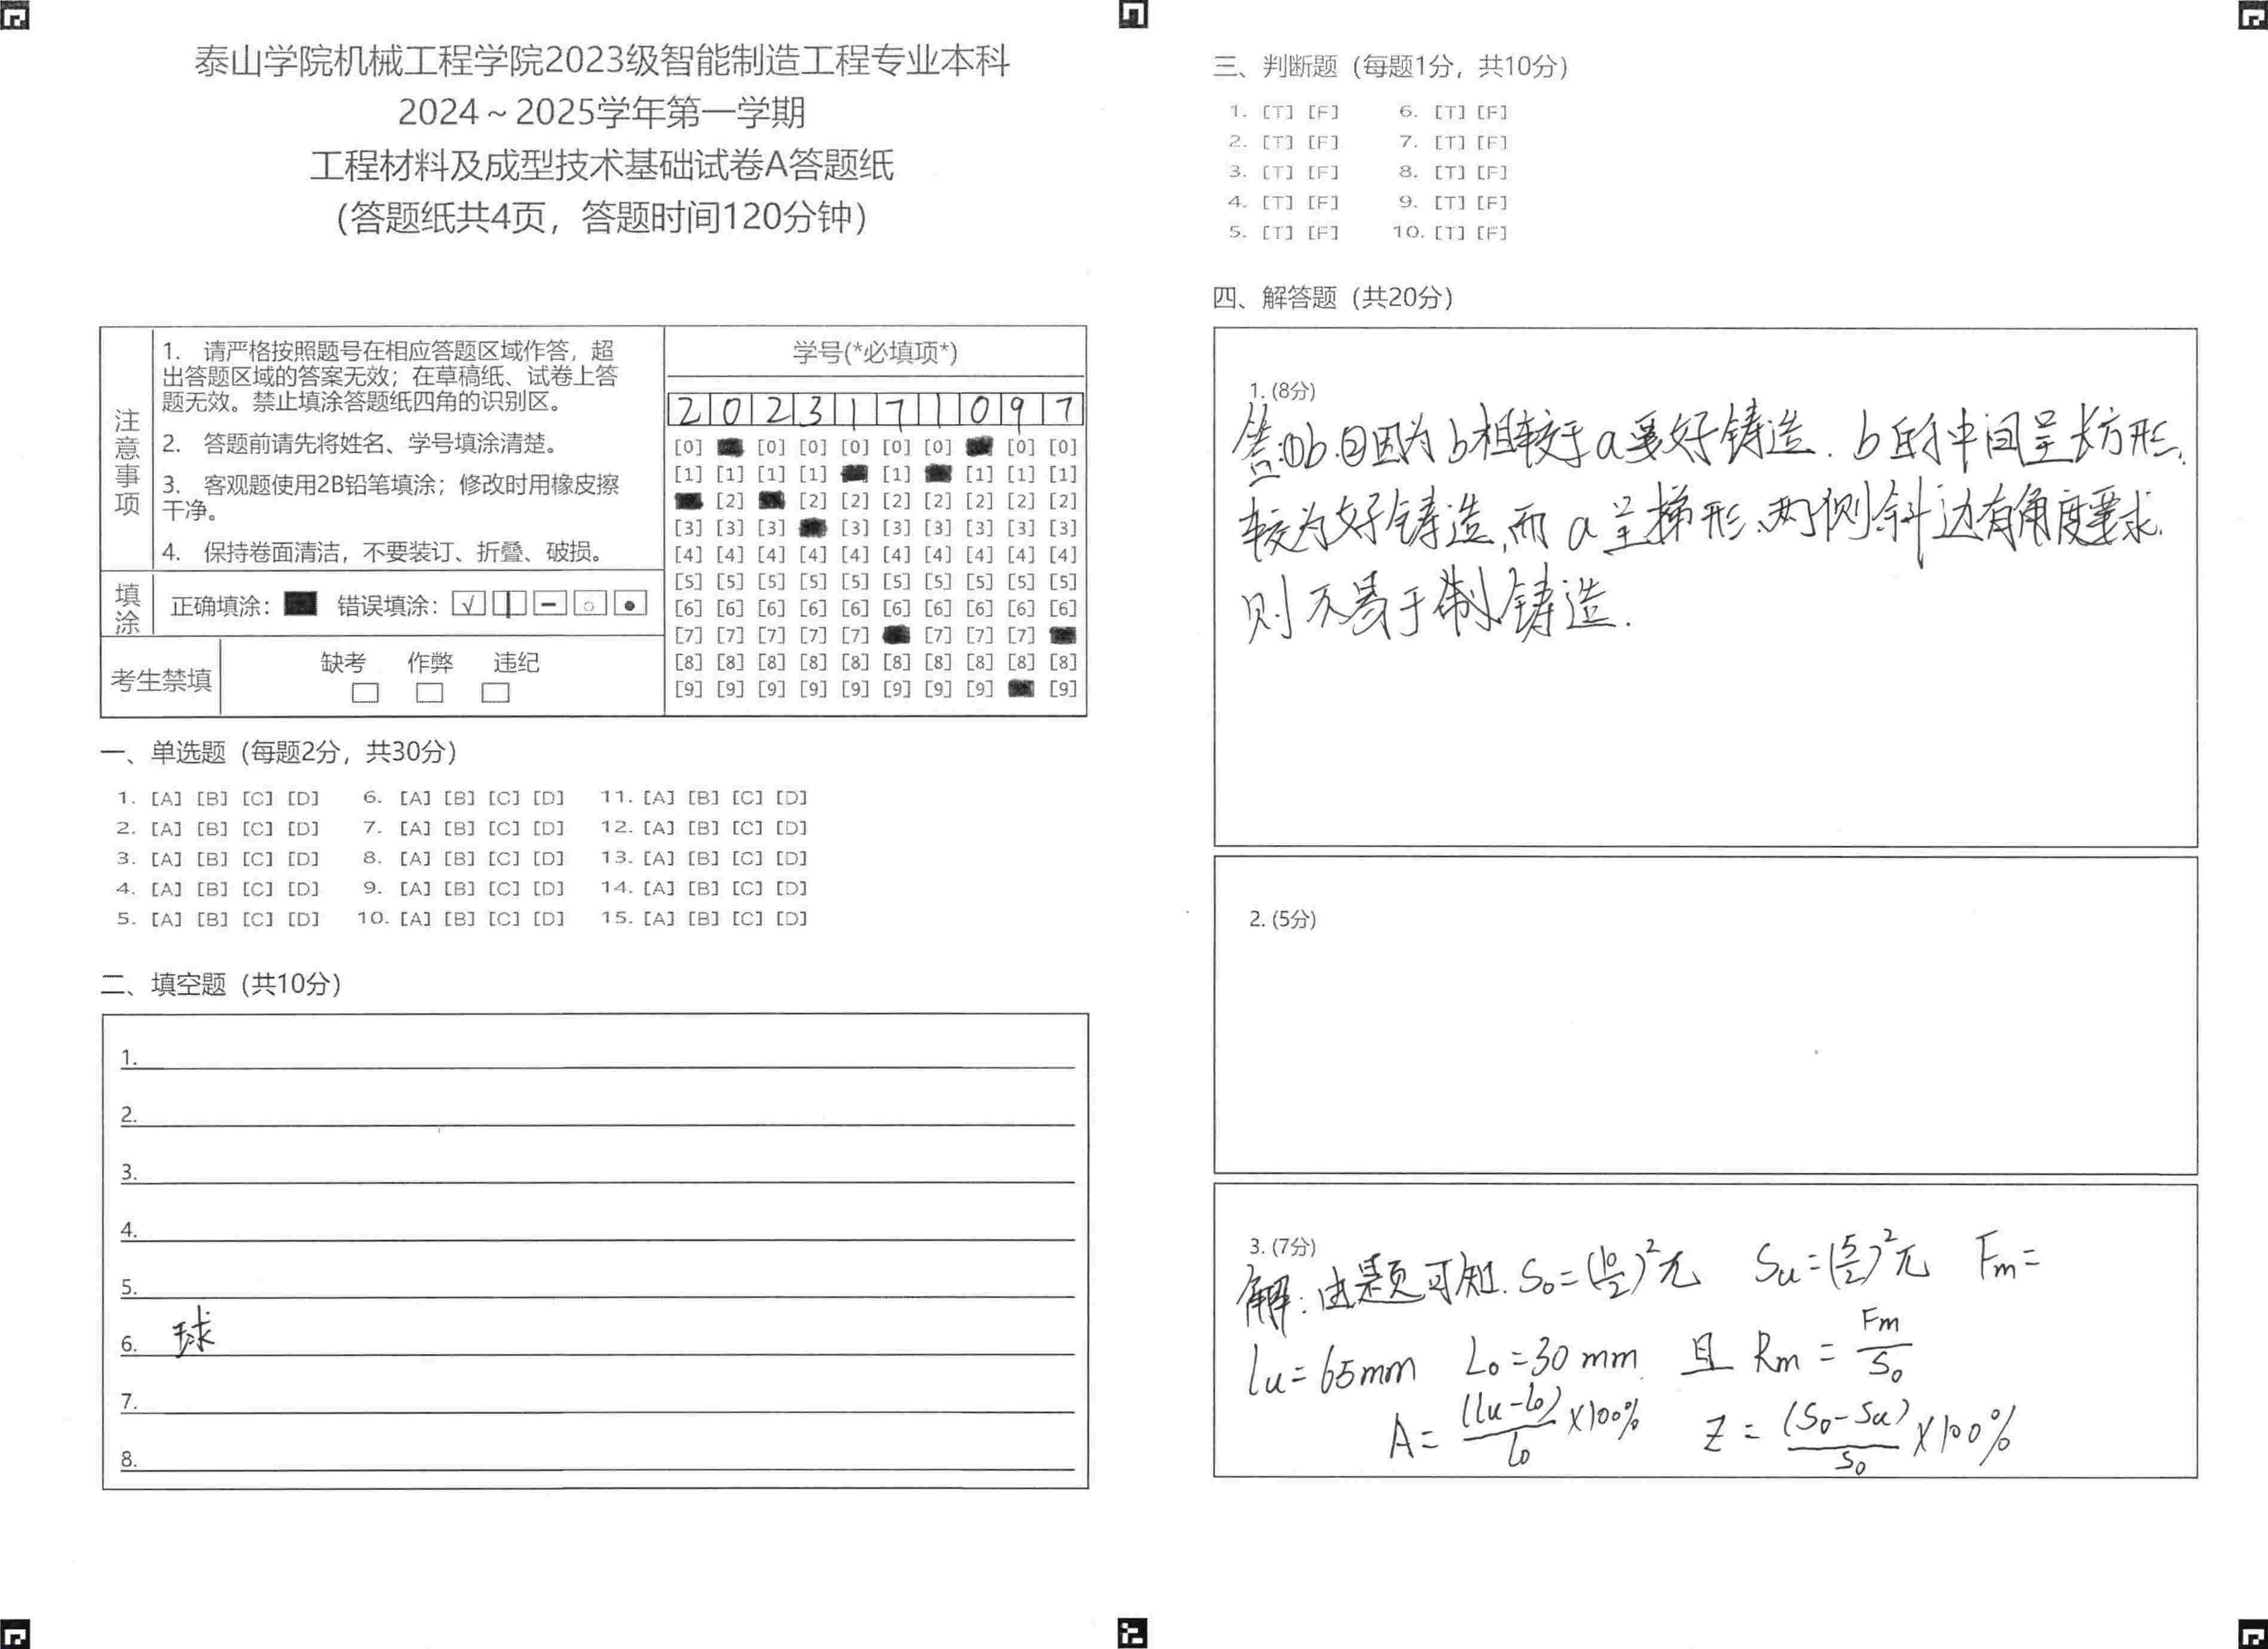 泰山学院机械工程学院2023级智能制造工程专业本科
2024～2025学年第一学期
工程材料及成型技术基础试卷A答题纸
（答题纸共4页，答题时间120分钟）
注意事项
1. 请严格按照题号在相应答题区域作答，超
出答题区域的答案无效；在草稿纸、试卷上答
题无效。禁止填涂答题纸四角的识别区。
2. 答题前请先将姓名、学号填涂清楚。
3. 客观题使用2B铅笔填涂；修改时用橡皮擦
干净。
4. 保持卷面清洁，不要装订、折叠、破损。
填涂
正确填涂： 错误填涂： √
考生禁填
缺考 作弊 违纪
学号(*必填项*)
2 0 2 3 1 7 1 0 9 7
[0] [0] [0] [0] [0] [0] [0] [0]
[1] [1] [1] [1] [1] [1] [1] [1]
[2] [2] [2] [2] [2] [2] [2] [2]
[3] [3] [3] [3] [3] [3] [3] [3] [3]
[4] [4] [4] [4] [4] [4] [4] [4] [4] [4]
[5] [5] [5] [5] [5] [5] [5] [5] [5] [5]
[6] [6] [6] [6] [6] [6] [6] [6] [6] [6]
[7] [7] [7] [7] [7] [7] [7] [7]
[8] [8] [8] [8] [8] [8] [8] [8] [8] [8]
[9] [9] [9] [9] [9] [9] [9] [9] [9]
一、单选题（每题2分，共30分）
1. [A] [B] [C] [D] 6. [A] [B] [C] [D] 11. [A] [B] [C] [D]
2. [A] [B] [C] [D] 7. [A] [B] [C] [D] 12. [A] [B] [C] [D]
3. [A] [B] [C] [D] 8. [A] [B] [C] [D] 13. [A] [B] [C] [D]
4. [A] [B] [C] [D] 9. [A] [B] [C] [D] 14. [A] [B] [C] [D]
5. [A] [B] [C] [D] 10. [A] [B] [C] [D] 15. [A] [B] [C] [D]
二、填空题（共10分）
1.
2.
3.
4.
5.
6. 球
7.
8.
三、判断题（每题1分，共10分）
1. [T] [F] 6. [T] [F]
2. [T] [F] 7. [T] [F]
3. [T] [F] 8. [T] [F]
4. [T] [F] 9. [T] [F]
5. [T] [F] 10. [T] [F]
四、解答题（共20分）
1. (8分)
答:①b.②因为b相较于a要好铸造.b的中间呈长方形,
较为好铸造,而a呈梯形、两侧斜边有角度要求.
则不易于制铸造.
2. (5分)
3. (7分)
解:由题可知. S₀=(10/2)²π Su=(5/2)²π Fm=
lu=65mm L₀=30mm 且 Rm = Fm/S₀
A= (lu-l₀)/l₀ ×100% Z = (S₀-Su)/S₀ ×100%